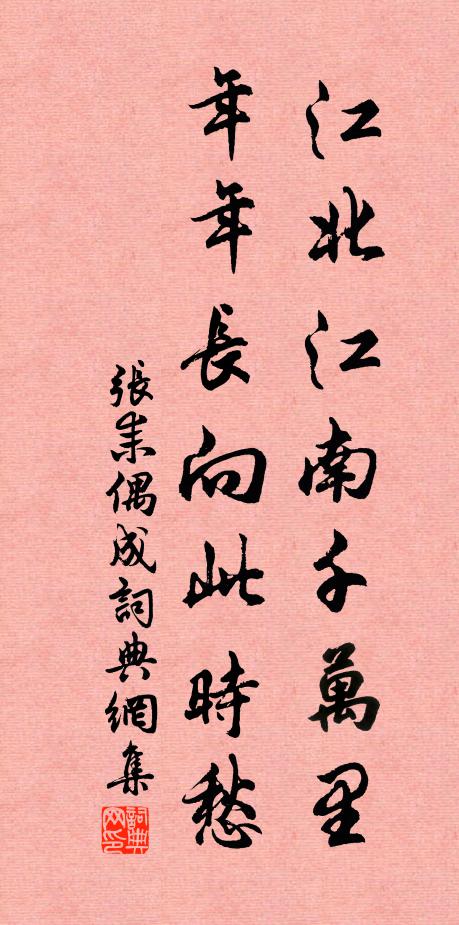 江北江南千萬里
年年長向此時愁
張耒偶成詞典網集
詞典网印